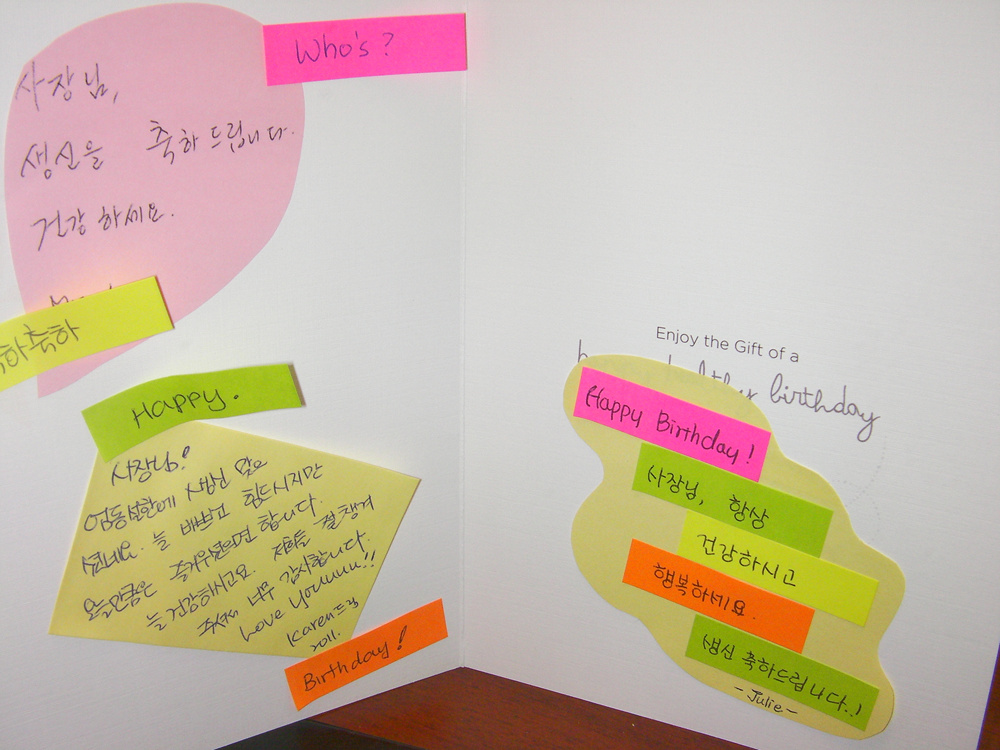 Who's?
사장님,
생신을 축하드립니다.
건강하세요.
하축하
Happy.
사장님!
엄동설한에 생신 맞으
셨네요. 늘 바쁘고 힘드시지만
오늘만큼은 즐거우셨으면 합니다.
늘 건강하시고요. 저희들 잘 챙겨
주셔서 너무 감사합니다.
Love youuuu!!
Karen드림
2011.
Birthday!
Enjoy the Gift of a
birthday
Happy Birthday!
사장님, 항상
건강하시고
행복하세요.
생신 축하드립니다..!
-Julie-